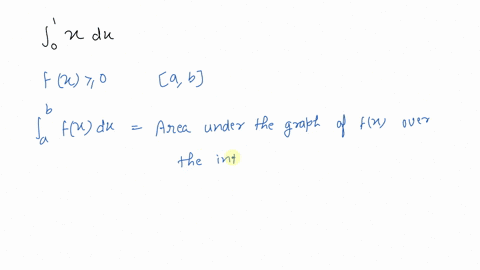 ∫₀¹ x dx
f(x) ≥ 0 [a, b]
∫ₐᵇ f(x) dx = Area under the graph of f(x) over
the int